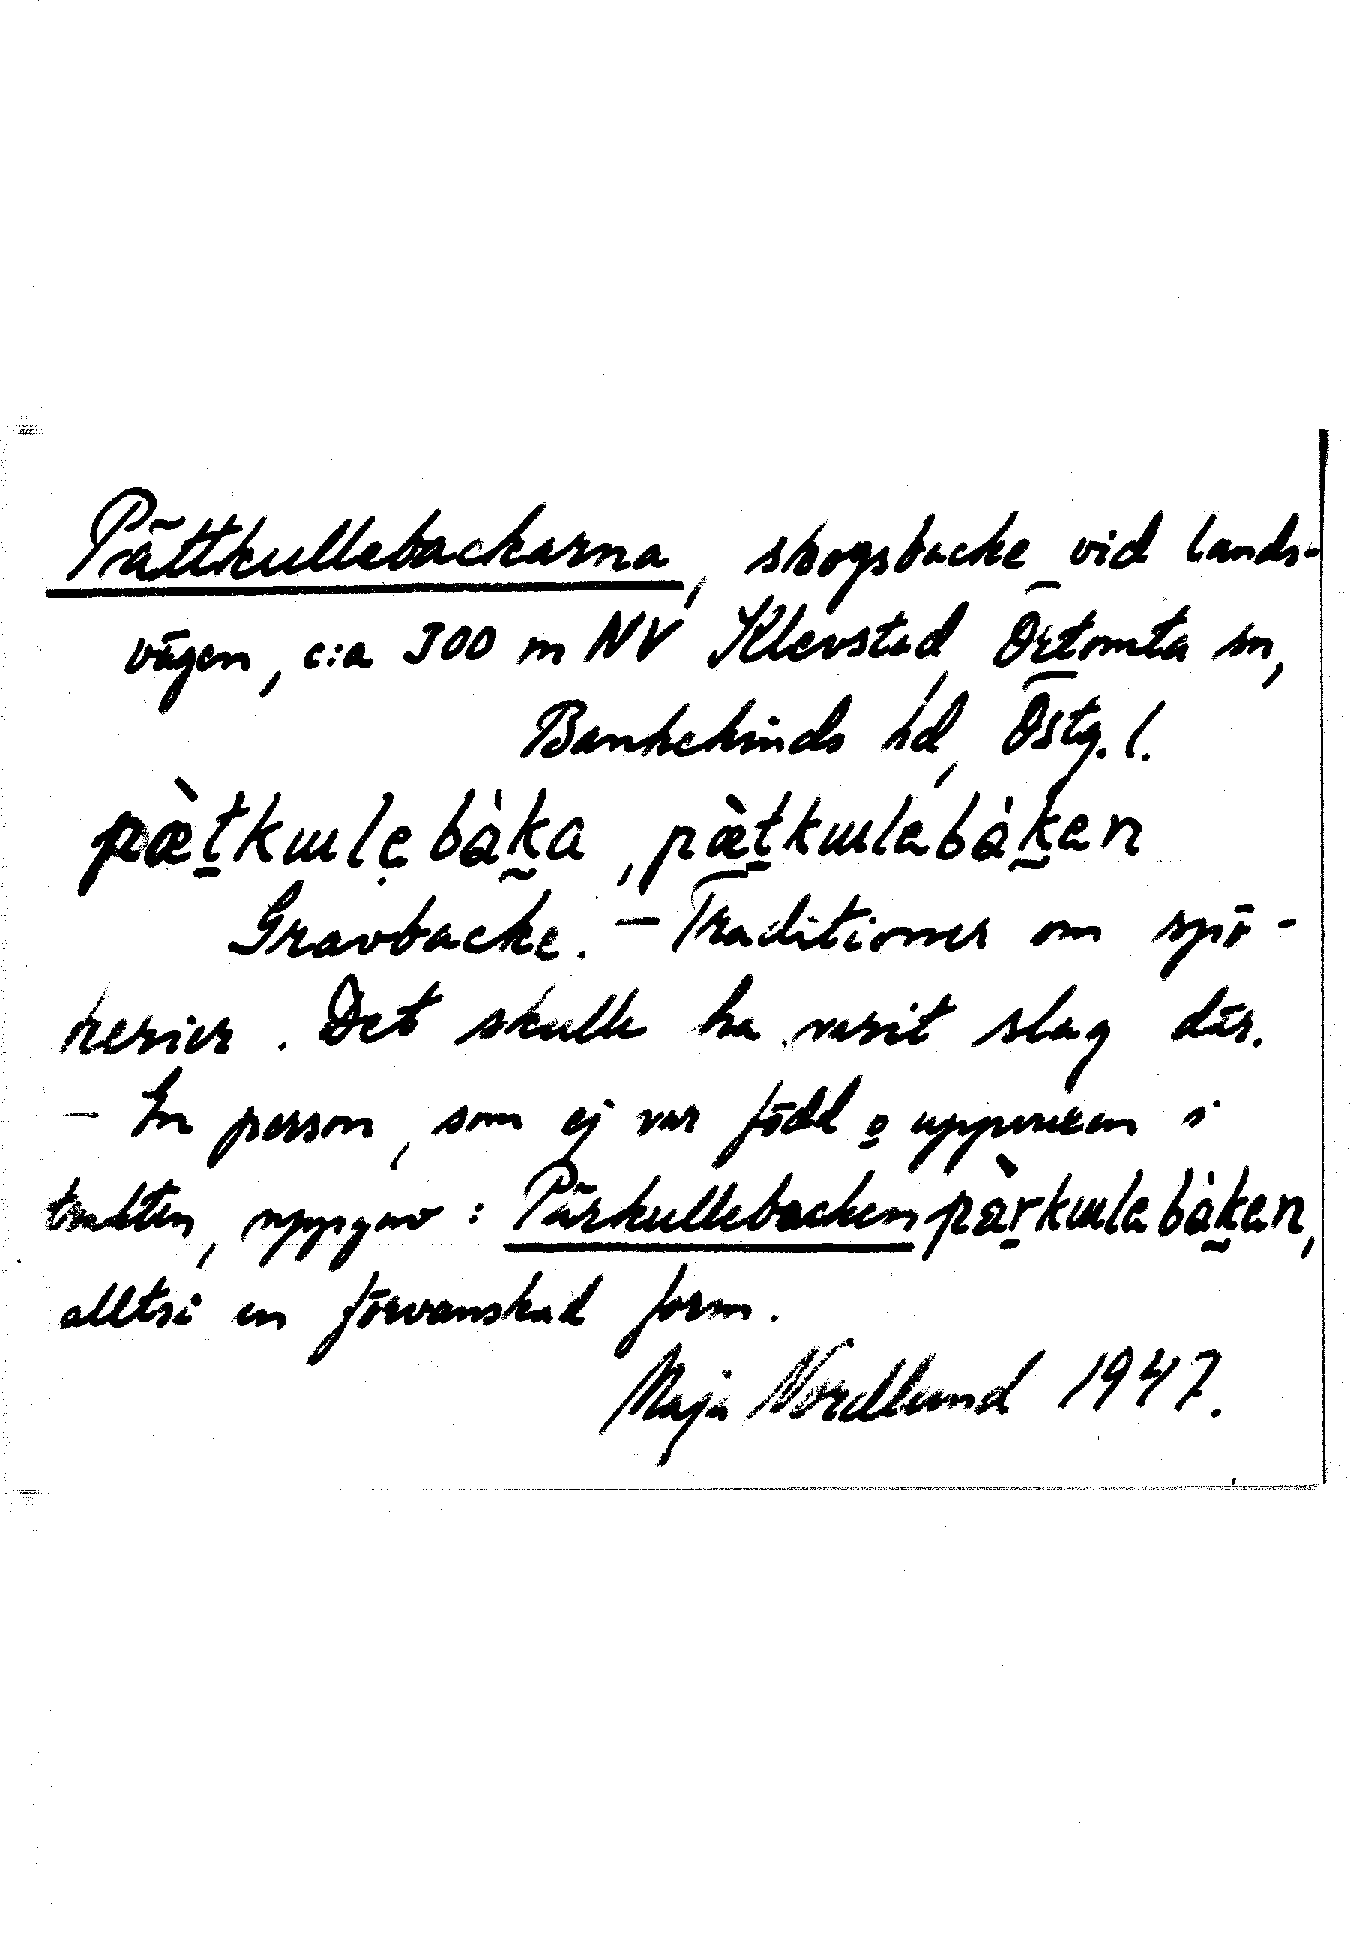 Pättkullebackarna, skogsbacke vid lands-
vägen, c:a 300 m NV Klevstad, Örtomta sn,
Bankekinds hd, Östg. l.
pæ̀t̲kɯlebàk̰a, pæ̀t̲kɯlebàk̰en
Gravbacke. – Traditioner om spö-
kerier. Det skulle ha varit slag där.
– En person, som ej var född o uppvuxen i
trakten, uppgav: Pärkullebacken pàr̲kɯlebàk̰en,
alltså en förvanskad form.
Maja Nordlund 1947.